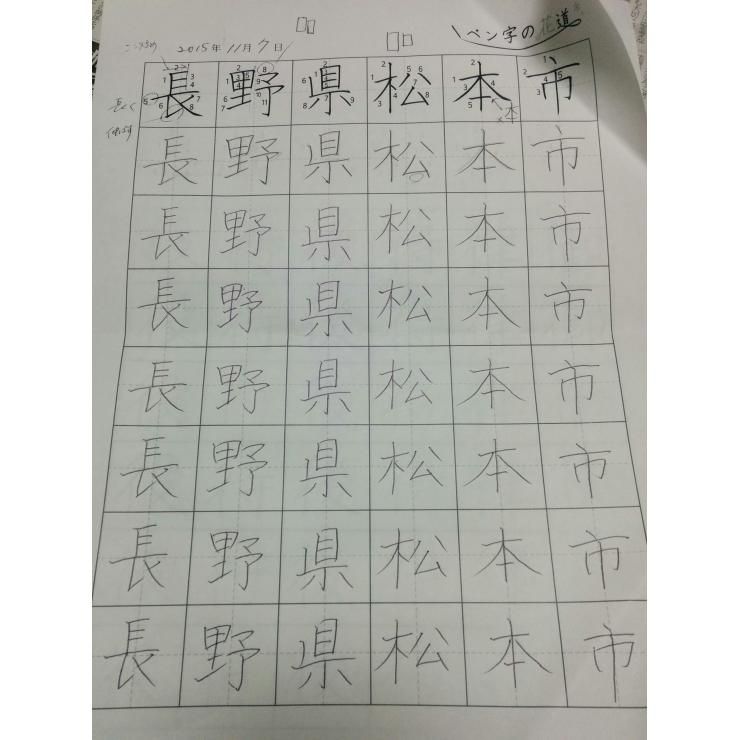 ペン字の花道
2015年11月7日
長野県松本市
長野県松本市
長野県松本市
長野県松本市
長野県松本市
長野県松本市
長野県松本市
長野県松本市